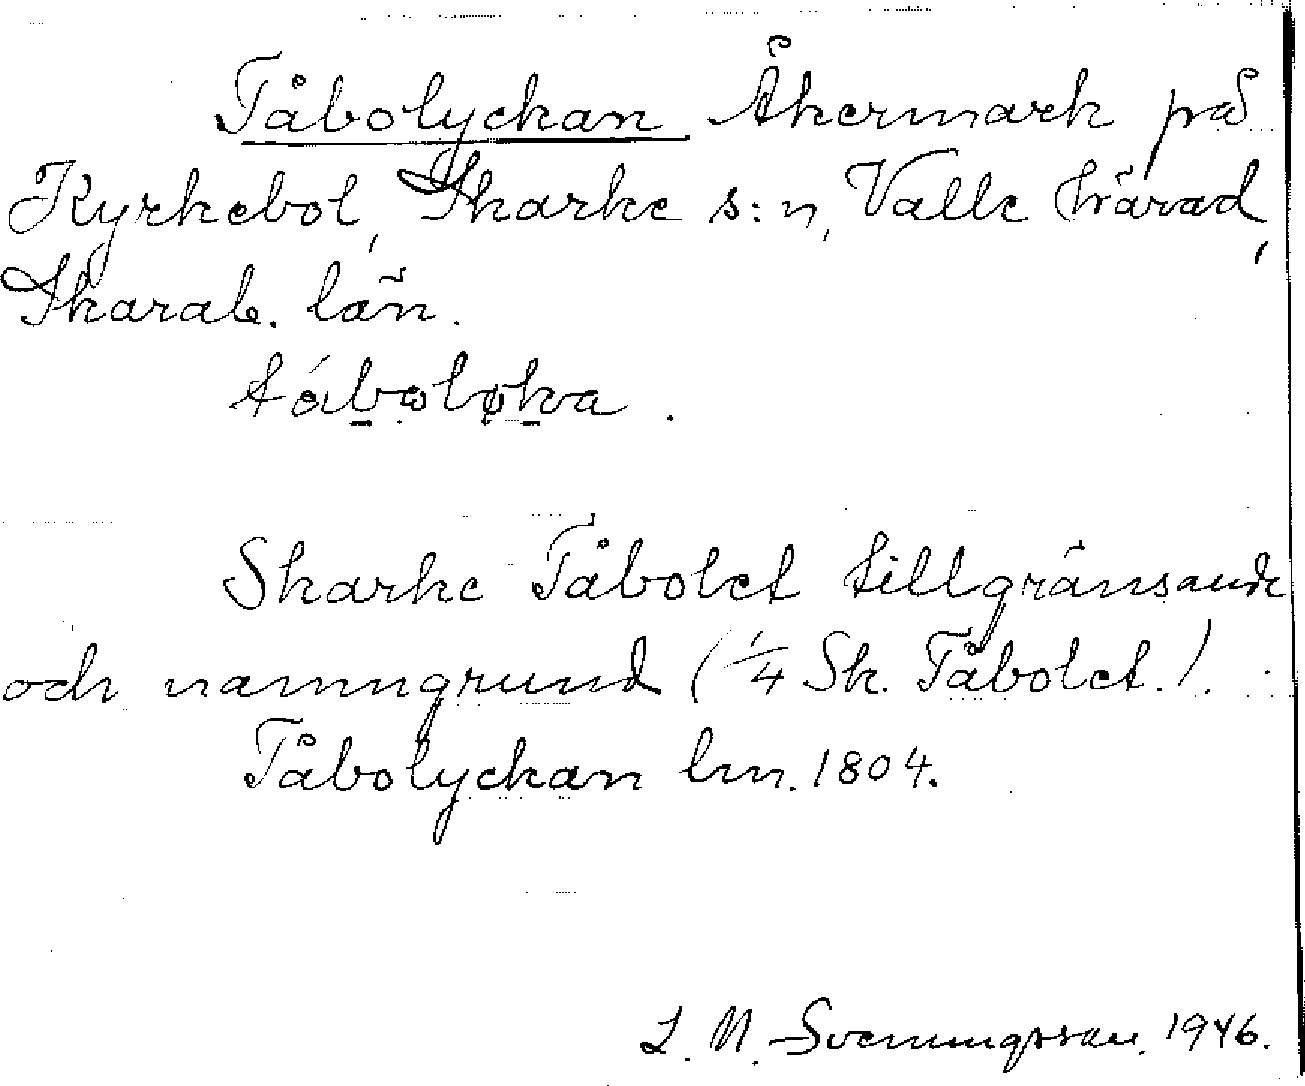 Tåbolyckan Åkermark på
Kyrkebol, Skarke s:n, Valle härad,
Skarab. län.
Skarke Tåbolet tillgränsande
och namngrund (1/4 Sk. Tåbolet.).
Tåbolyckan lm. 1804.
L. M. Svenungsson. 1946.